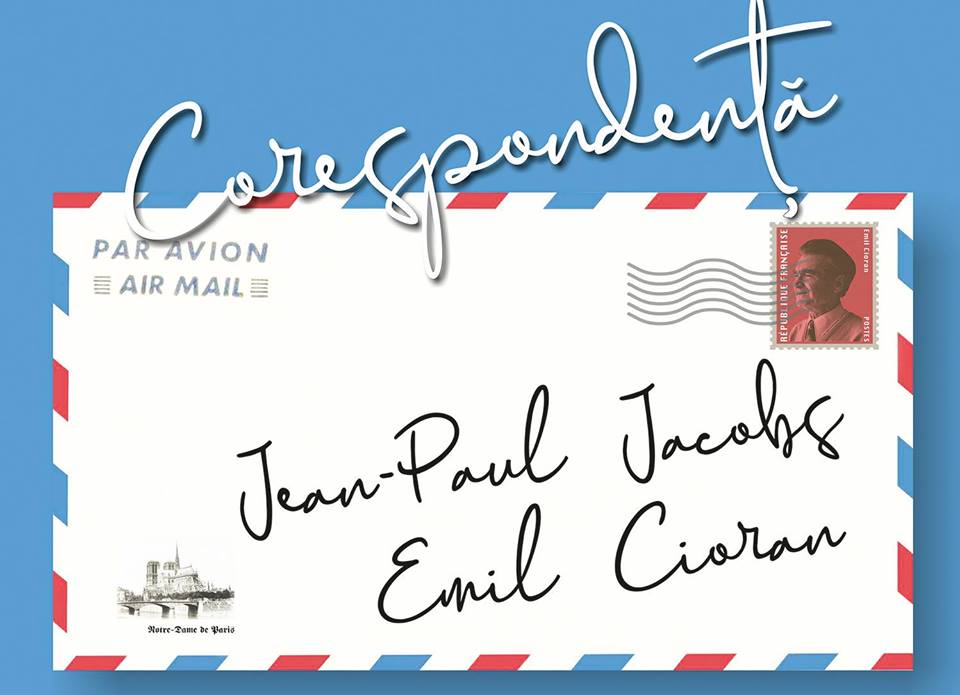 Corespondență
PAR AVION
AIR MAIL
RÉPUBLIQUE FRANÇAISE
Emil Cioran
POSTES
Jean-Paul Jacobs
Emil Cioran
Notre-Dame de Paris